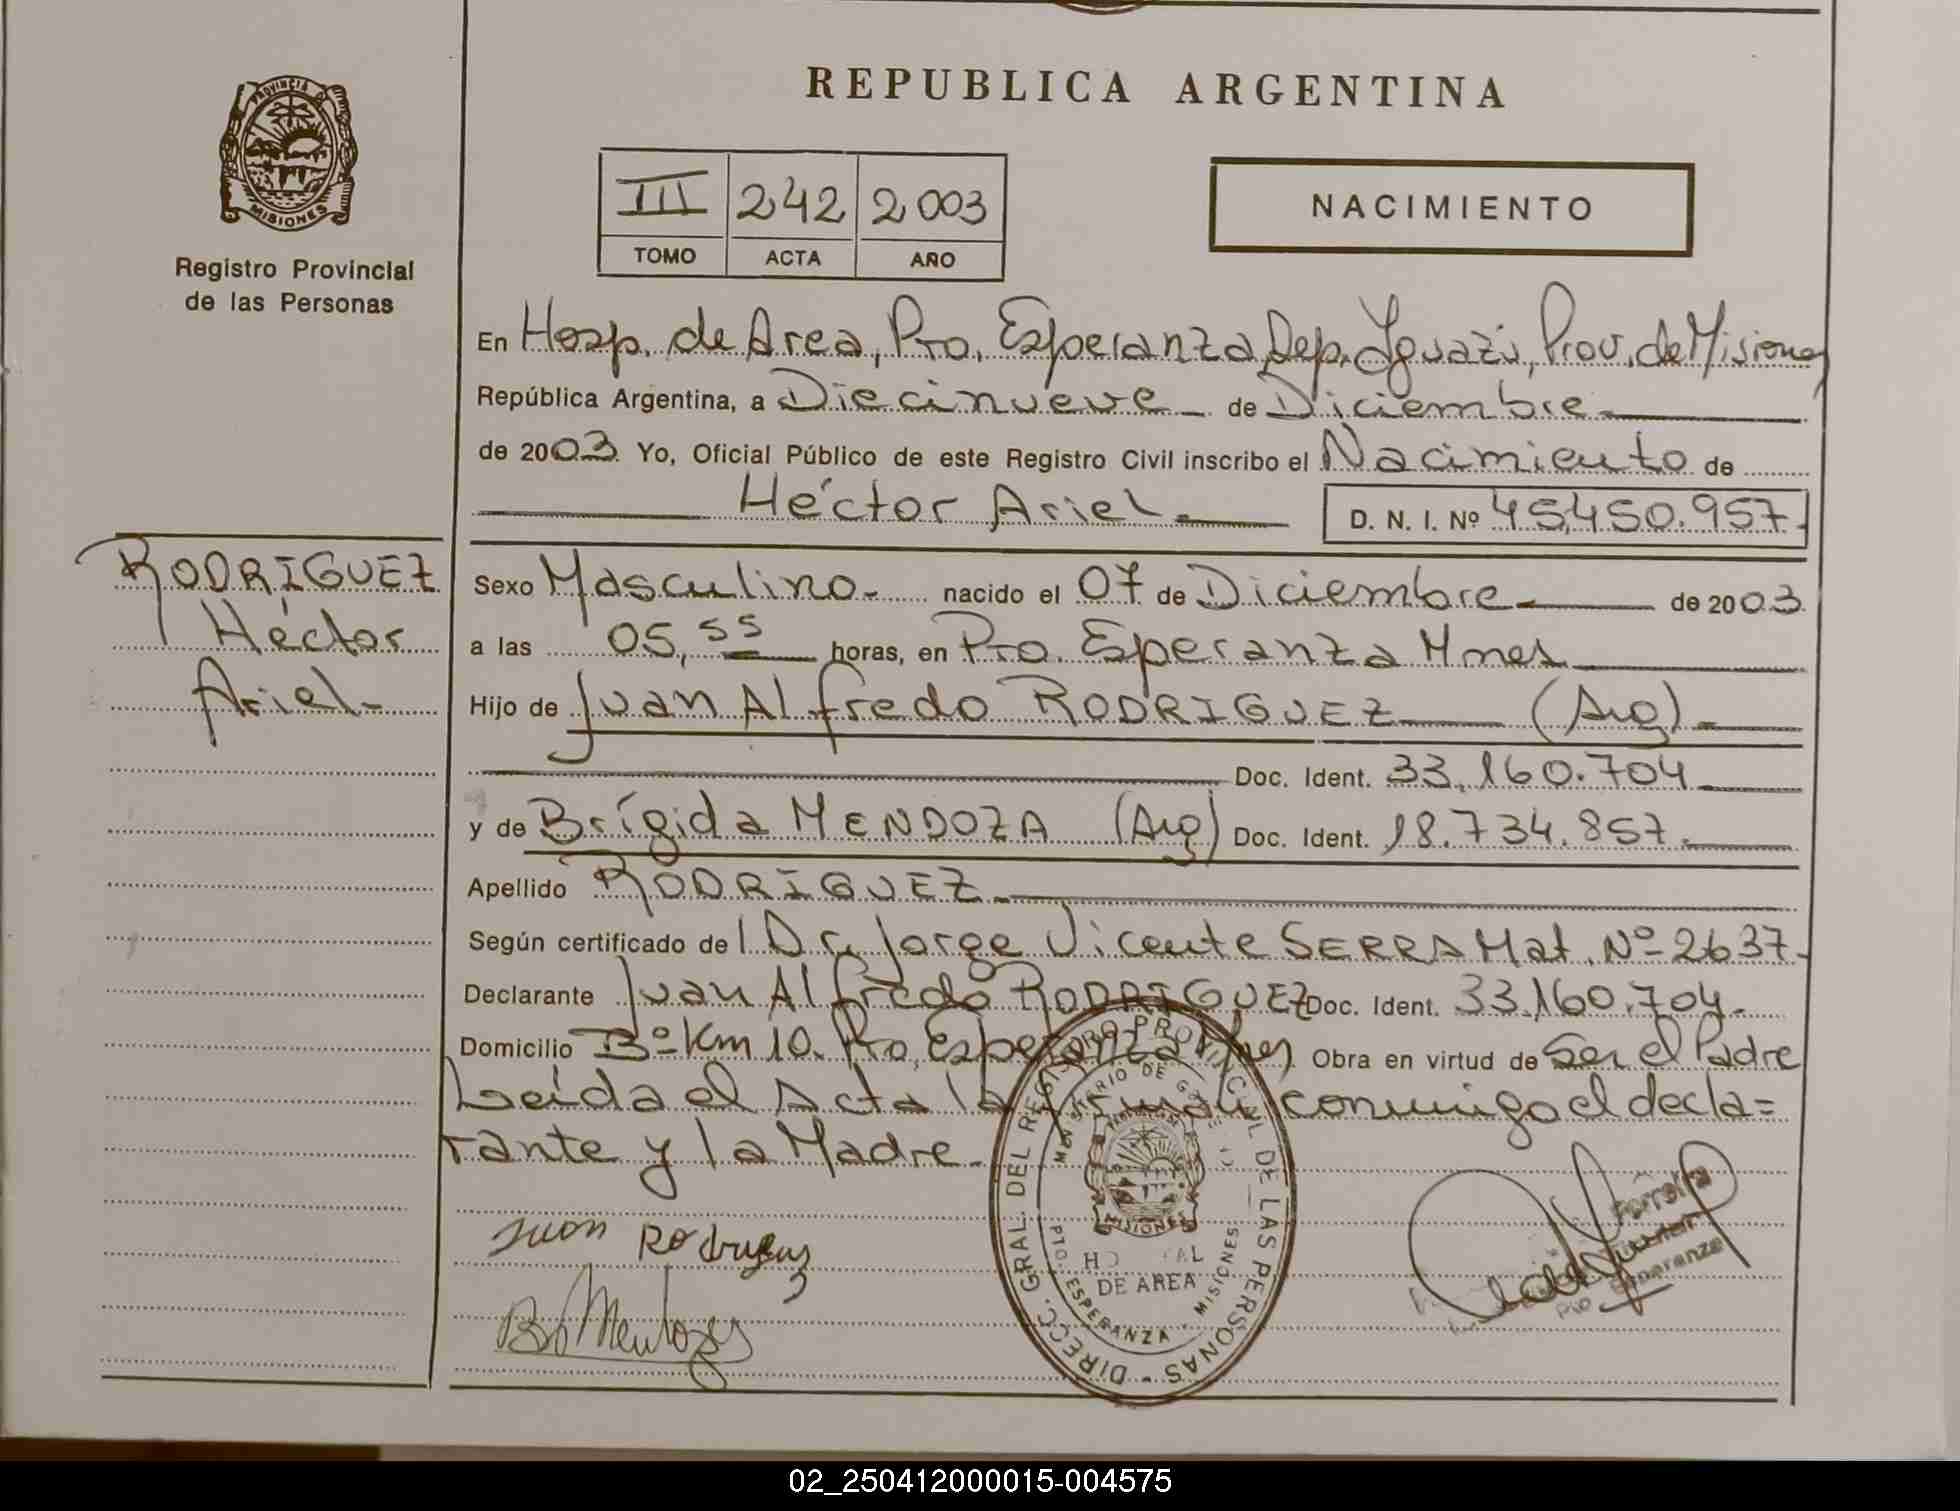 REPUBLICA ARGENTINA
PROVINCIA D
MISIONES
Registro Provincial
de las Personas
III 242 2003
TOMO ACTA AÑO
NACIMIENTO
En Hosp. de Area, Pto. Esperanza Dep. Iguazú, Prov. de Misiones
República Argentina, a Diecinueve de Diciembre
de 2003 Yo, Oficial Público de este Registro Civil inscribo el Nacimiento de
Héctor Ariel D. N. I. Nº 45,450.957.
RODRÍGUEZ
Héctor
Ariel
Sexo Masculino nacido el 07 de Diciembre de 2003
a las 05,55 horas, en Pto. Esperanza Mnes
Hijo de Juan Alfredo RODRIGUEZ (Arg)
Doc. Ident. 33.160.704
y de Brígida MENDOZA (Arg) Doc. Ident. 18.734.857.
Apellido RODRÍGUEZ
Según certificado del Dr. Jorge Vicente SERRA Mat. Nº 2637.
Declarante Juan Alfredo RODRIGUEZ Doc. Ident. 33.160.704.
Domicilio Bº Km 10. Pto. Esperanza Mnes Obra en virtud de Ser el Padre
Leída el Acta la firman conmigo el decla=
rante y la Madre.
Juan Rodriguez
DIRECC. GRAL. DEL REGISTRO PROVINCIAL DE LAS PERSONAS
MINISTERIO DE G
MISIONES
HO TAL
DE AREA
PTO. ESPERANZA - MISIONES
Ferreira
Pto Esperanza
02_250412000015-004575